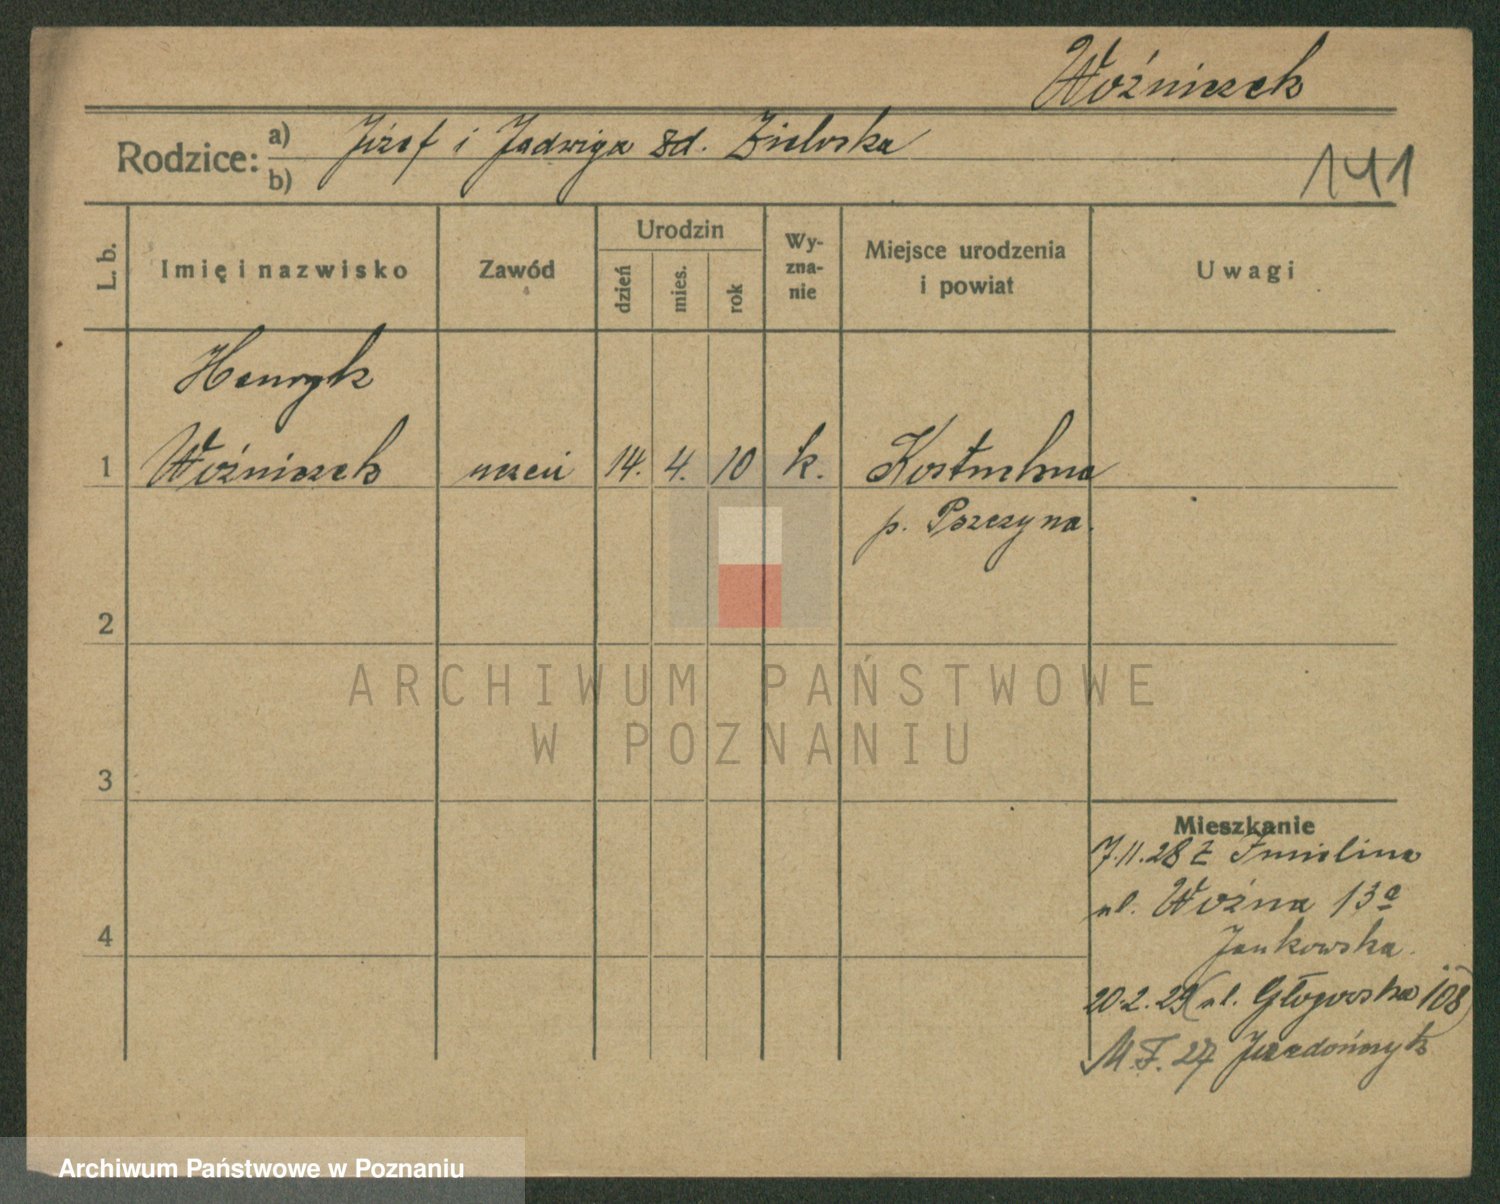 Woźniczek
Rodzice: a) Józef i Jadwiga zd. Zielska
b)
141
L. b.
Imię i nazwisko
Zawód
Urodzin
dzień
mies.
rok
Wy-
zna-
nie
Miejsce urodzenia
i powiat
Uwagi
Henryk
1 Woźniczek uczeń 14. 4. 10 k. Kostuchna
p. Pszczyna.
2
3
4
ARCHIWUM PAŃSTWOWE
W POZNANIU
Mieszkanie
7.11.28 z Imielina
ul. Woźna 13a
Jankowska.
20.2.29 (ul. Głogowska 108)
M. F. 27
Archiwum Państwowe w Poznaniu